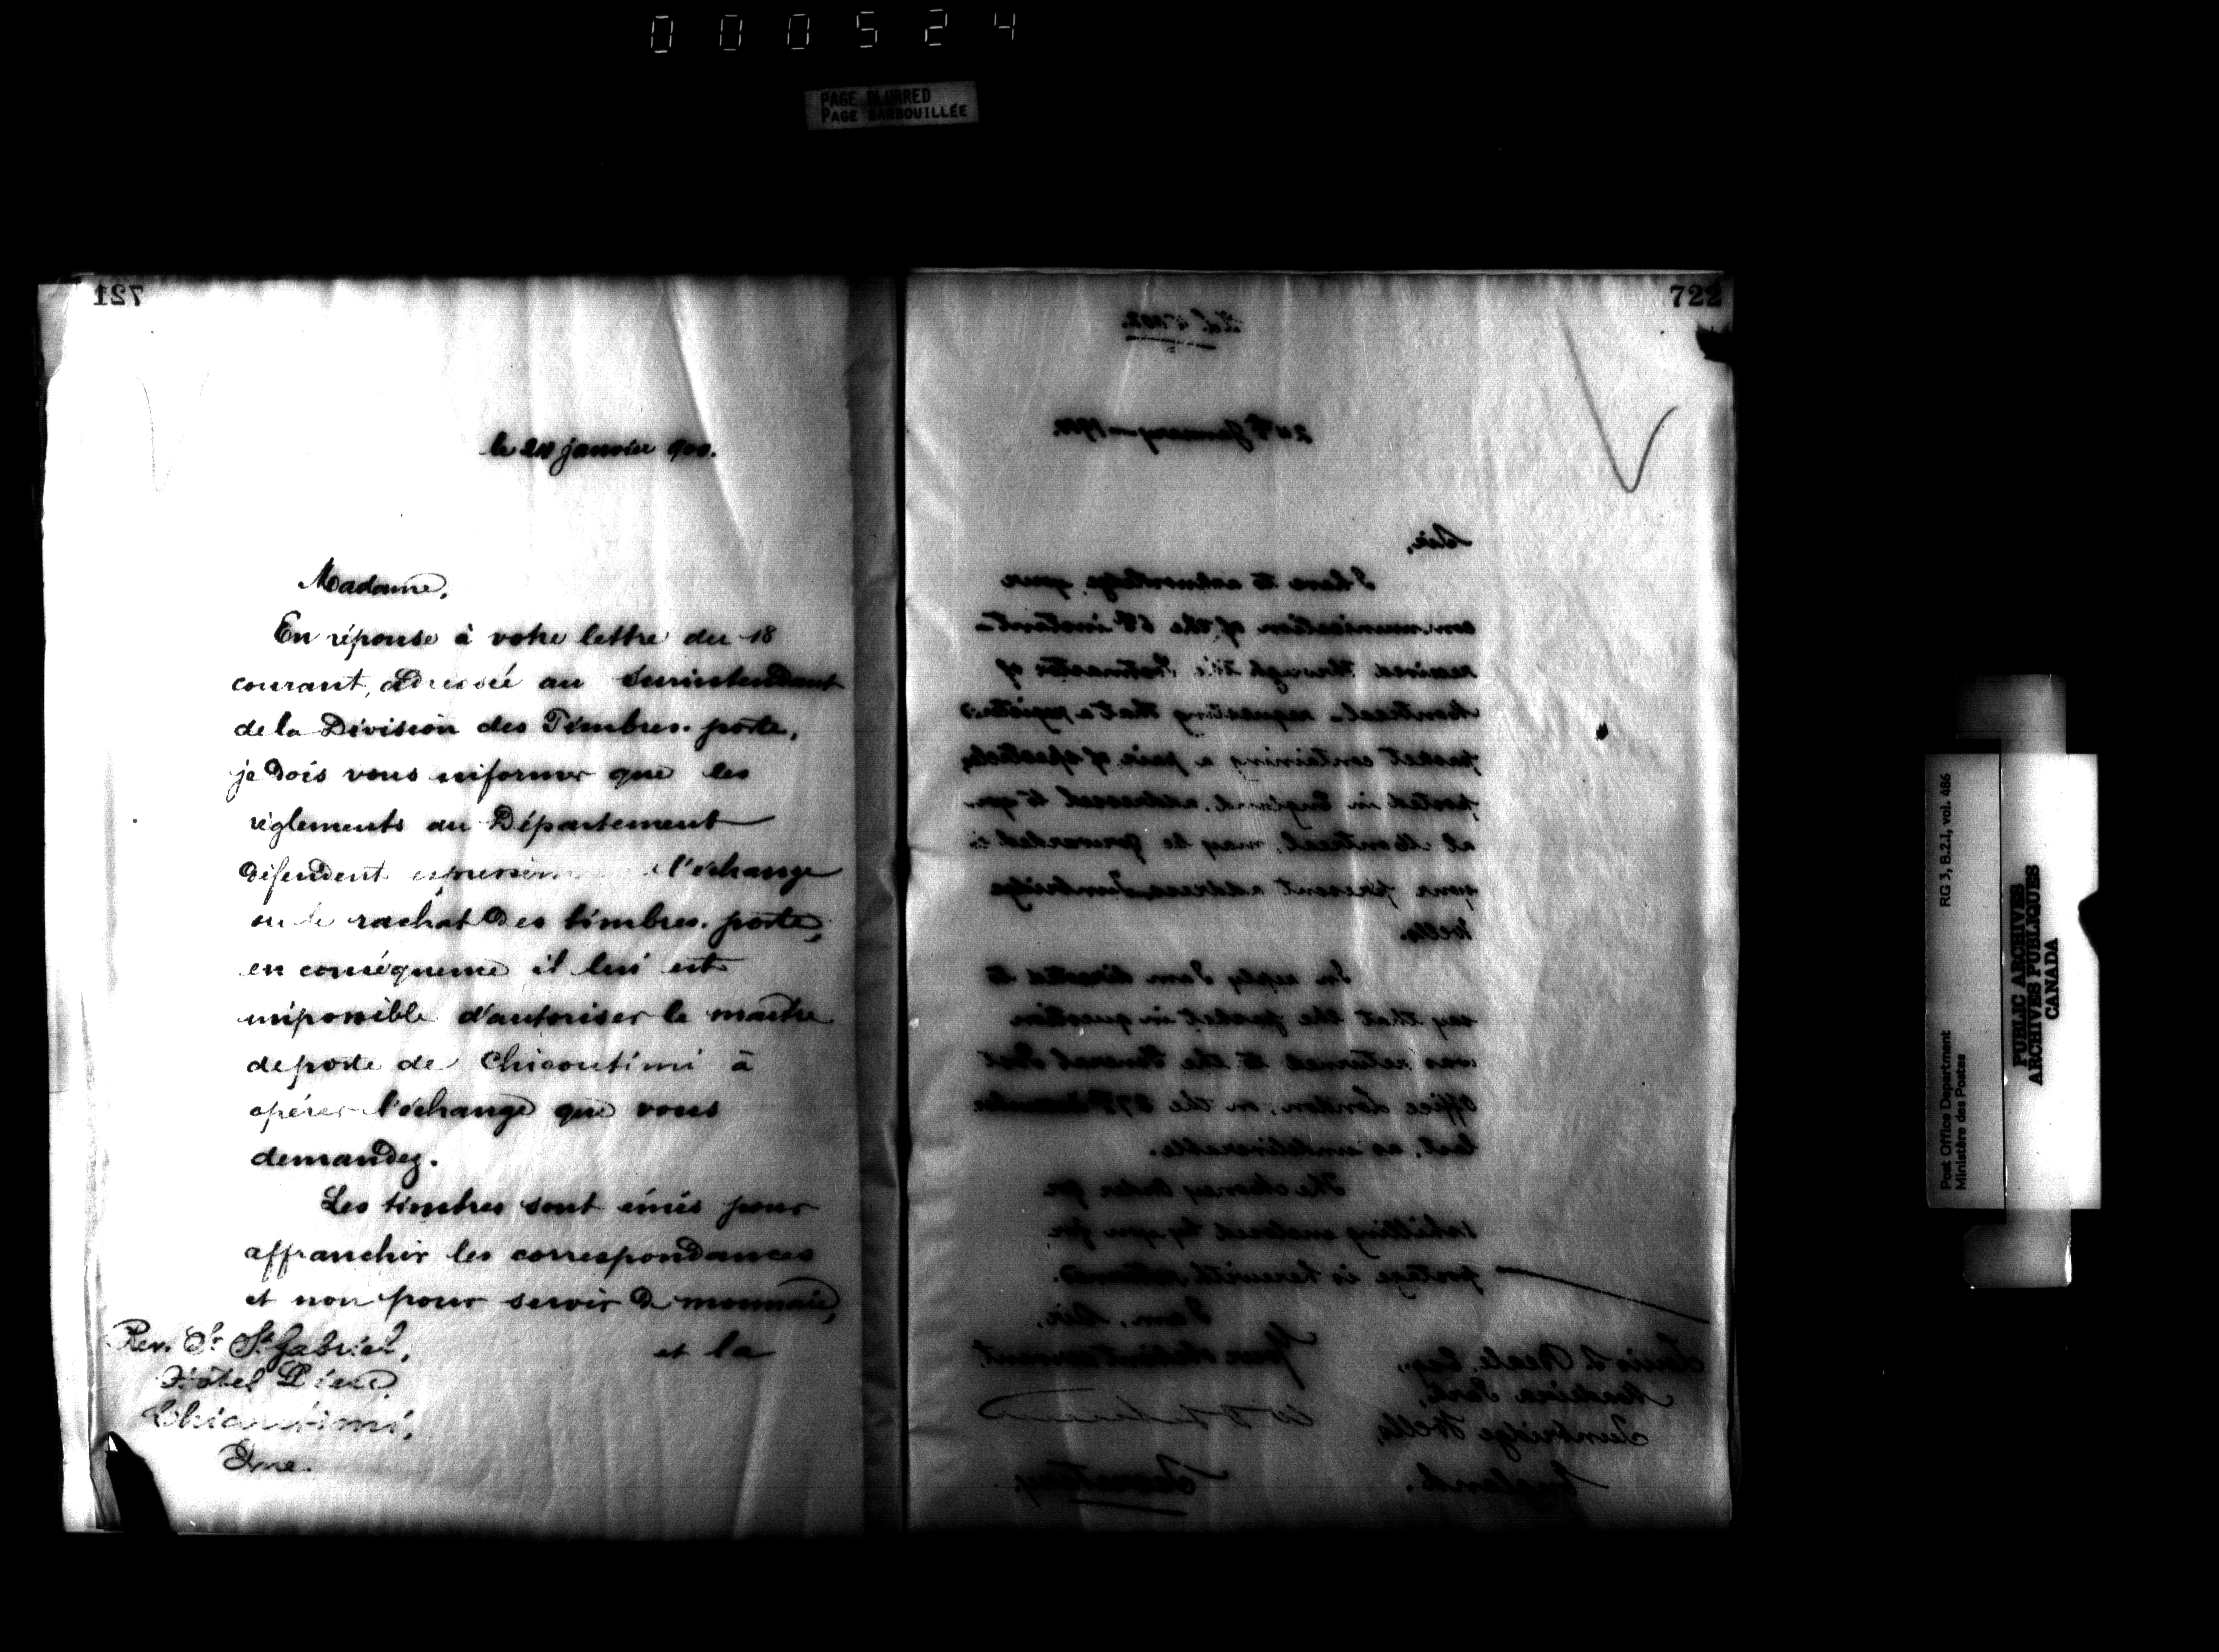 000524
PAGE BLURRED
PAGE BARBOUILLÉE
721
le 24 janvier 900.
Madame,
En réponse à votre lettre du 18
courant, adressée au Surintendant
de la Division des Timbres-poste,
je dois vous informer que les
règlements du Département
défendent l'échange
ou le rachat des timbres-poste,
en conséquence il lui est
impossible d'autoriser le maître
de poste de Chicoutimi à
opérer l'échange que vous
demandez.
Les timbres sont émis pour
affranchir les correspondances
et non pour servir de monnaie,
et la
Rev. Sr St Gabriel,
Hôtel Dieu,
Chicoutimi,
Que.
722
24th January 1900.
Sir,
I have to acknowledge your
communication of the 6th instant
received through the Postmaster of
Montreal requesting that a registered
packet containing a pair of spectacles
posted in England, addressed to you
at Montreal, may be forwarded to
your present address Tunbridge
Wells.
In reply I am directed to
say that the packet in question
was returned to the General Post
Office London, on the
last, as undeliverable.
The Money Order for
1 shilling enclosed by you for
postage is herewith returned.
I am, Sir,
Your obedient servant
Secretary.
Louis S. Beale, Esq.,
Madeira Park,
Tunbridge Wells,
England.
Post Office Department
Ministère des Postes
RG 3, B.2.I, vol. 486
PUBLIC ARCHIVES
ARCHIVES PUBLIQUES
CANADA